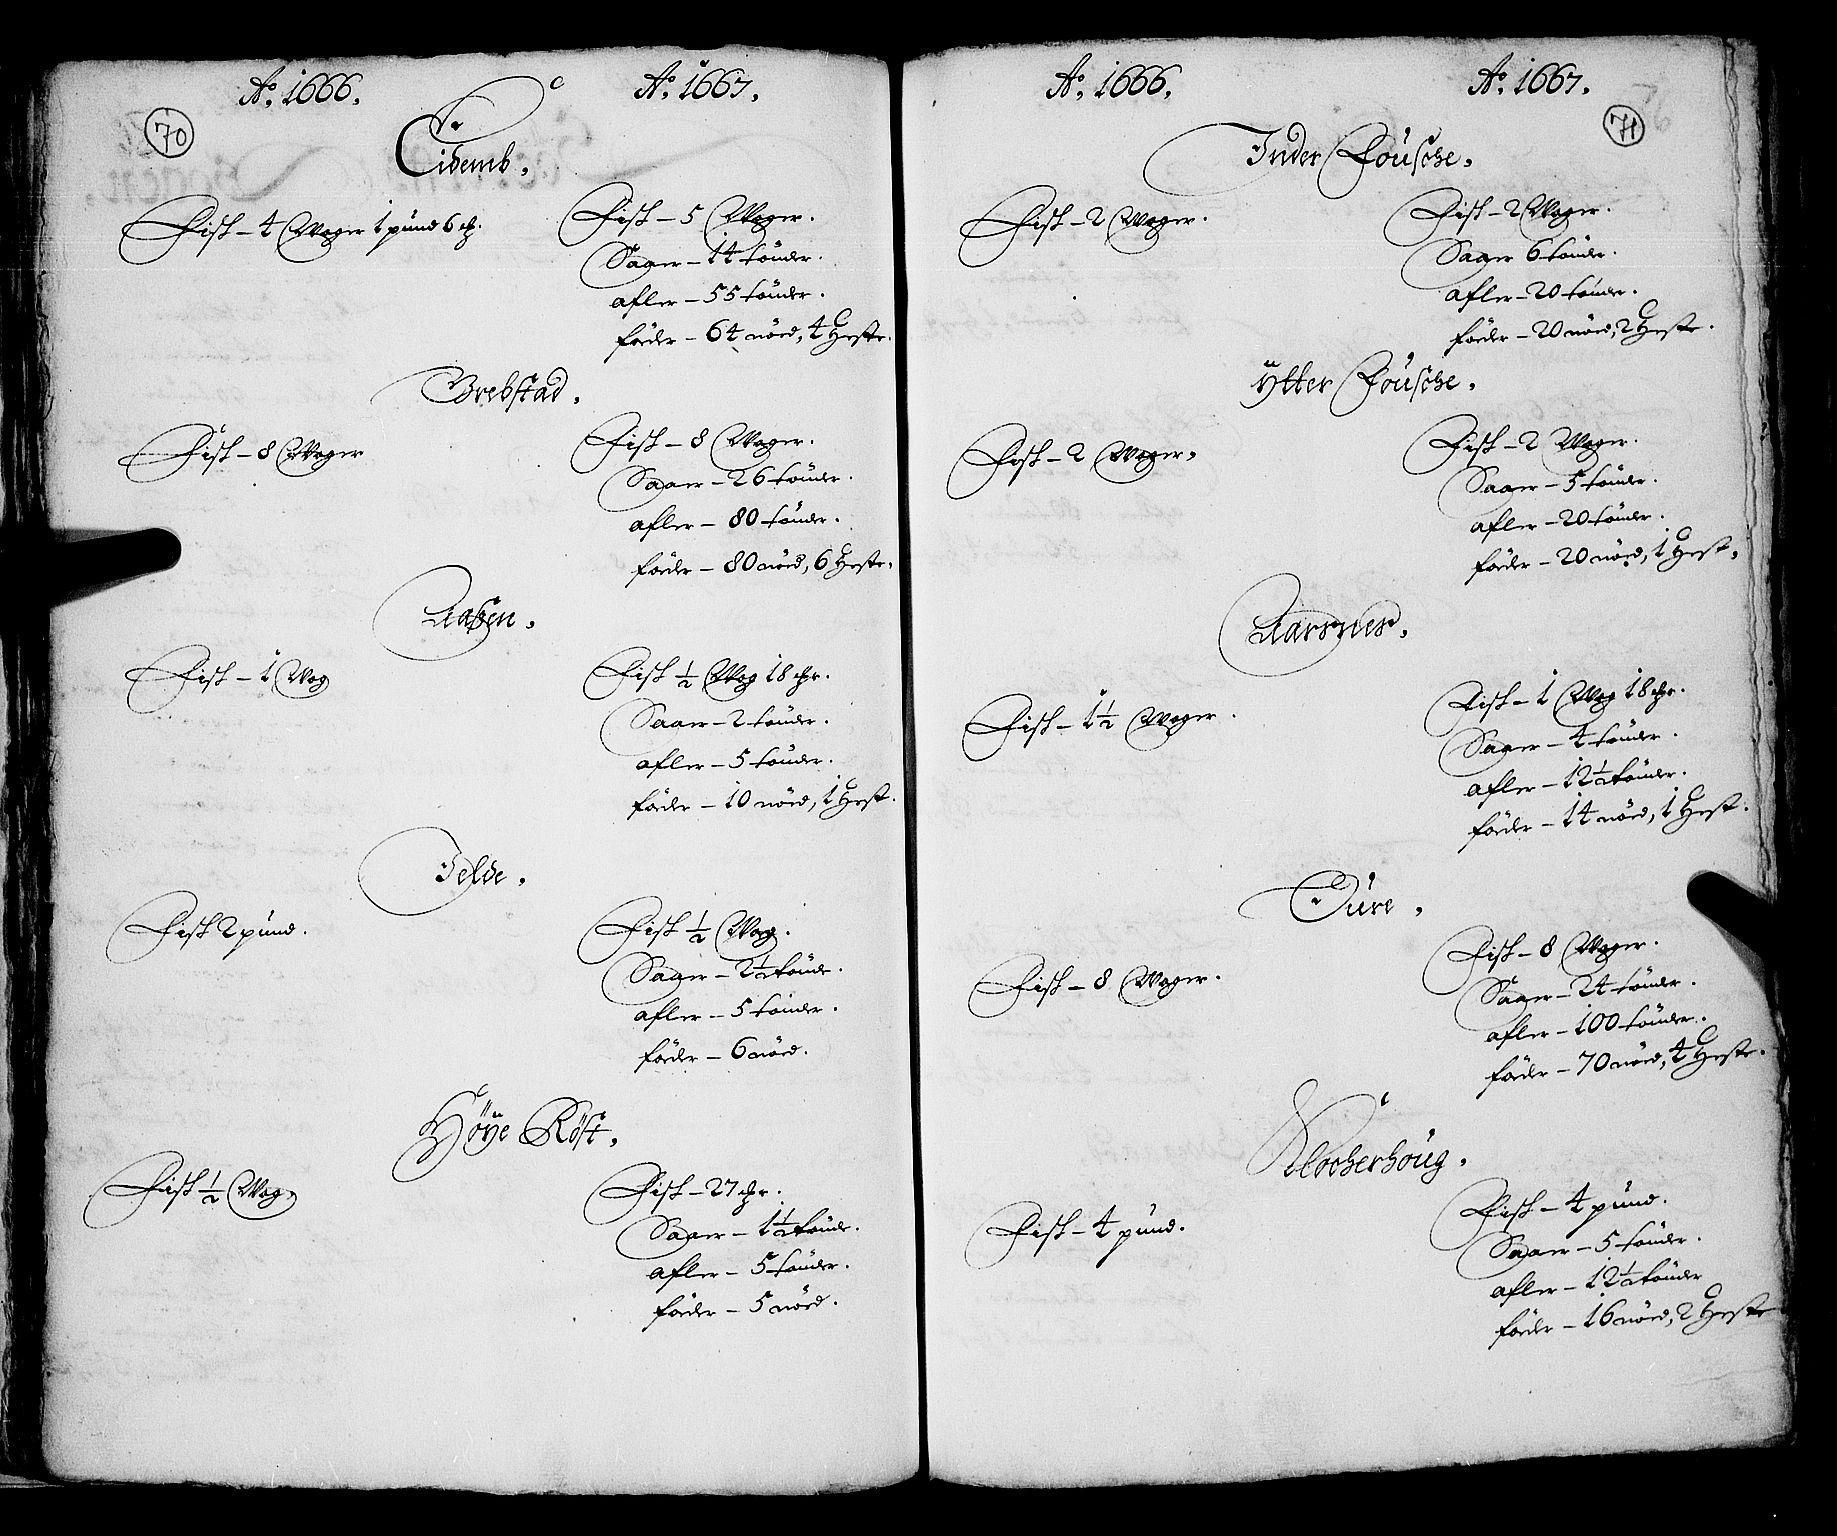 70
Ao. 1666. Ao. 1667.
Eidemb.
Fisk – 4 Woger 1 pund 6 ch. Fisk – 5 Woger.
Saaer – 14 tönder.
afler – 55 tönder.
föder – 64 nöed, 4 Heste.
Brebstad.
Fisk – 8 Woger Fisk – 8 Woger.
Saaer – 26 tönder.
afler – 80 tönder.
föder – 80 nöed, 6 Heste.
Aasen.
Fisk – 1 Wog Fisk ½ Wog 18 chr.
Saaer – 2 tönder.
afler – 5 tönder.
föder – 10 nöed, 1 Hest.
Telöe.
Fisk 2 pund. Fisk ½ Wog.
Saaer – 2½ tönde.
afler – 5 tönder.
föder – 6 nöed.
Höye Röst.
Fisk ½ Wog. Fisk – 27 chr.
Saaer – 1½ tönde.
afler – 5 tönder.
föder – 5 nöed.
71
Ao. 1666. Ao. 1667.
Inder Fousche.
Fisk – 2 Woger. Fisk – 2 Woger.
Saaer 6 tönder.
afler – 20 tönder.
föder – 20 nöed, 2 Heste.
Ytter Fousche.
Fisk – 2 Woger. Fisk – 2 Woger.
Saaer – 5 tönder.
afler – 20 tönder.
föder – 20 nöed, 1 Hest.
Aarsnes.
Fisk – 1½ Woger. Fisk – 1 Wog 18 chr.
Saaer – 4 tönder.
afler – 12½ tönder.
föder – 14 nöed, 1 Hest.
Öure.
Fisk – 8 Woger. Fisk – 8 Woger.
Saaer – 24 tönder.
afler – 100 tönder.
föder – 70 nöed, 4 Heste.
Klocherhoug.
Fisk – 4 pund. Fisk – 4 pund.
Saaer – 5 tönder.
afler – 12½ tönder
föder – 16 nöed, 2 Heste